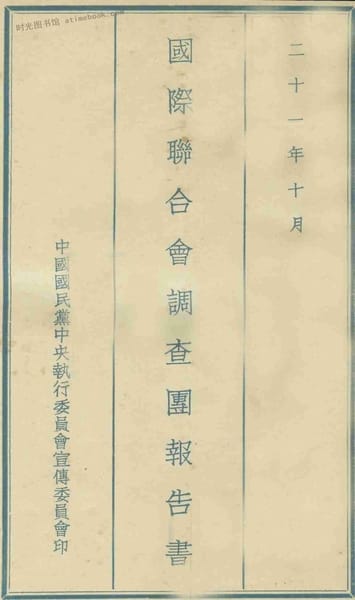 时光图书馆 atimebook.com
二十一年十月
國際聯合會調查團報告書
中國國民黨中央執行委員會宣傳委員會印